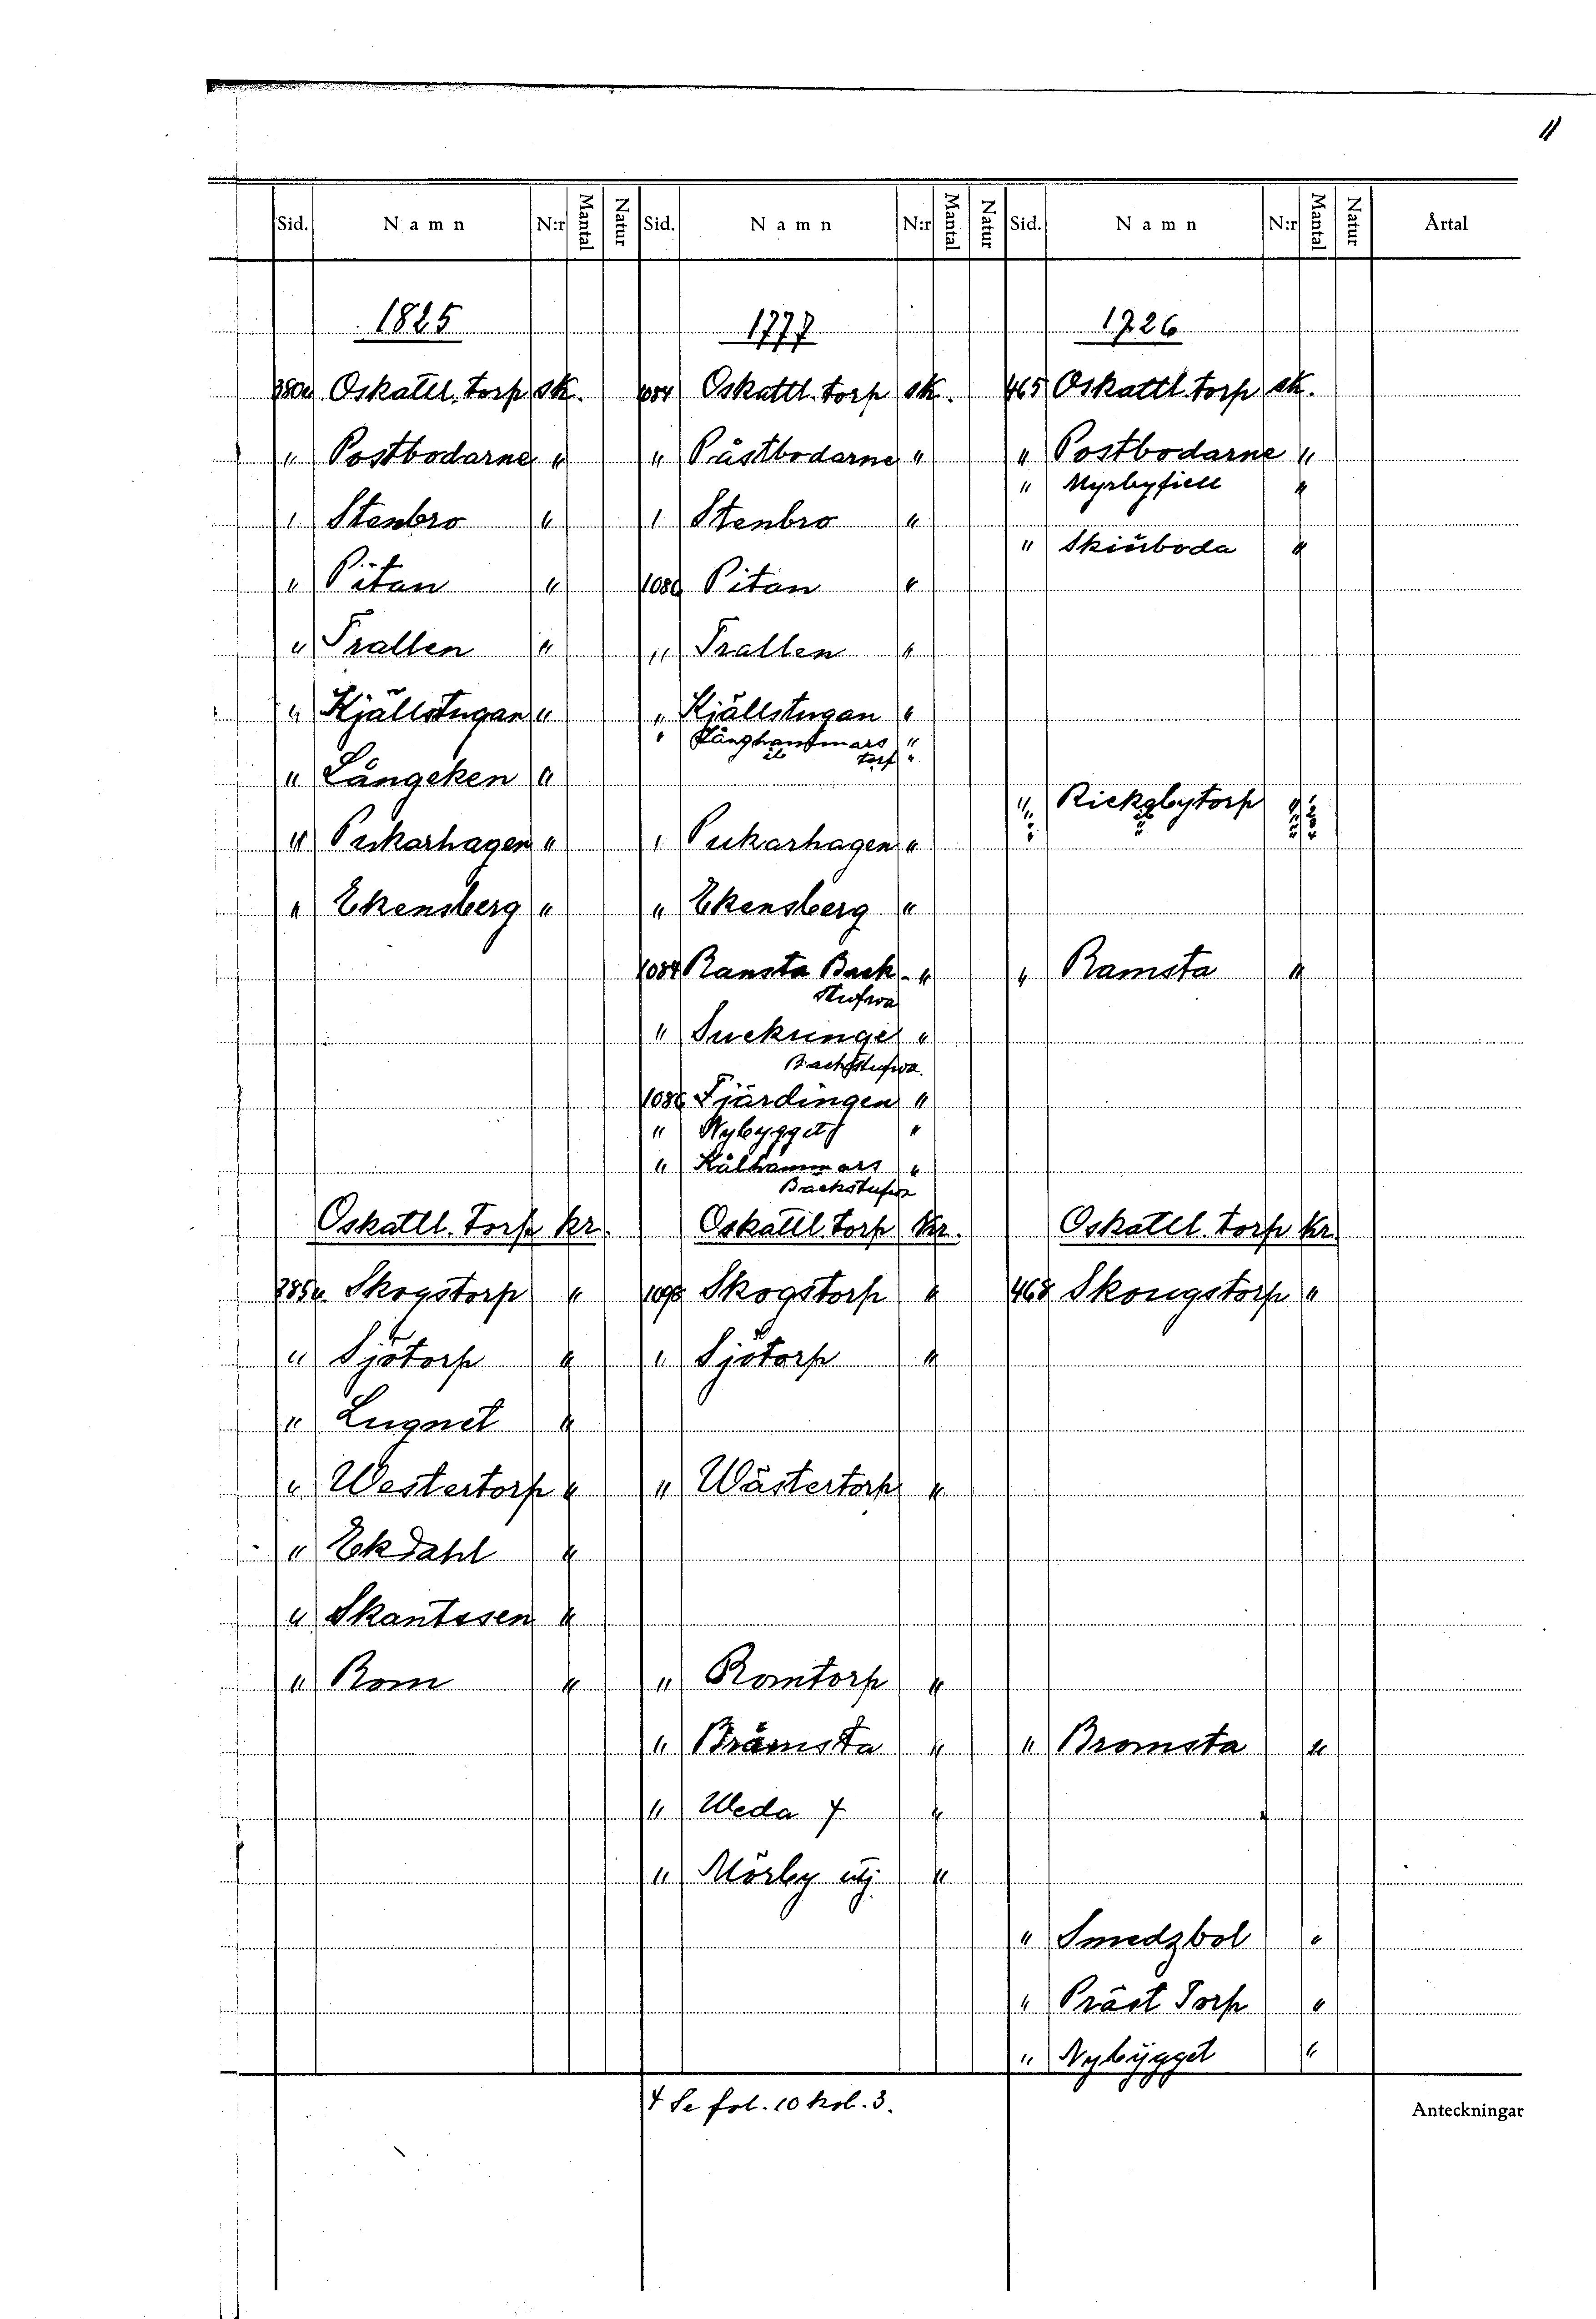 11
Sid. Namn N:r Mantal Natur Sid. Namn N:r Mantal Natur Sid. Namn N:r Mantal Natur Årtal
1825 1777 1726
380u Oskattl. torp sk. 1084 Oskattl. torp sk. 465 Oskattl. torp sk.
" Postbodarne " " Påstbodarne " " Postbodarne "
" Myrbyfiell "
" Stenbro " " Stenbro "
" Skinboda "
" Pitan " 1086 Pitan "
" Trallen " " Trallen "
" Kjällstugan " " Kjällstugan "
" Långhammars "
torp "
" Långeken "
" Rickebytorp "
" Pukarhagen " " Pukarhagen "
" Ekensberg " " Ekensberg "
1084 Ransta Back- " " Ramsta "
stufwa
" Suckunge "
Backstufwa.
1086 Fjärdingen "
" Nybygget "
" Kålhammars "
Backstufwa
Oskattl. torp kr. Oskattl. torp kr. Oskattl. torp kr.
385u Skogstorp " 1098 Skogstorp " 468 Skougstorp "
" Sjötorp " " Sjötorp "
" Lugnet "
" Westertorp " " Wästertorp "
" Ekdahl "
" Skantssen "
" Rom " " Romtorp "
" Brämsta " " Bromsta "
" Weda + "
" Mörby utj. "
" Smedzbol "
" Präst Torp "
" Nybÿgget "
+ Se fol. 10 kol. 3.
Anteckningar